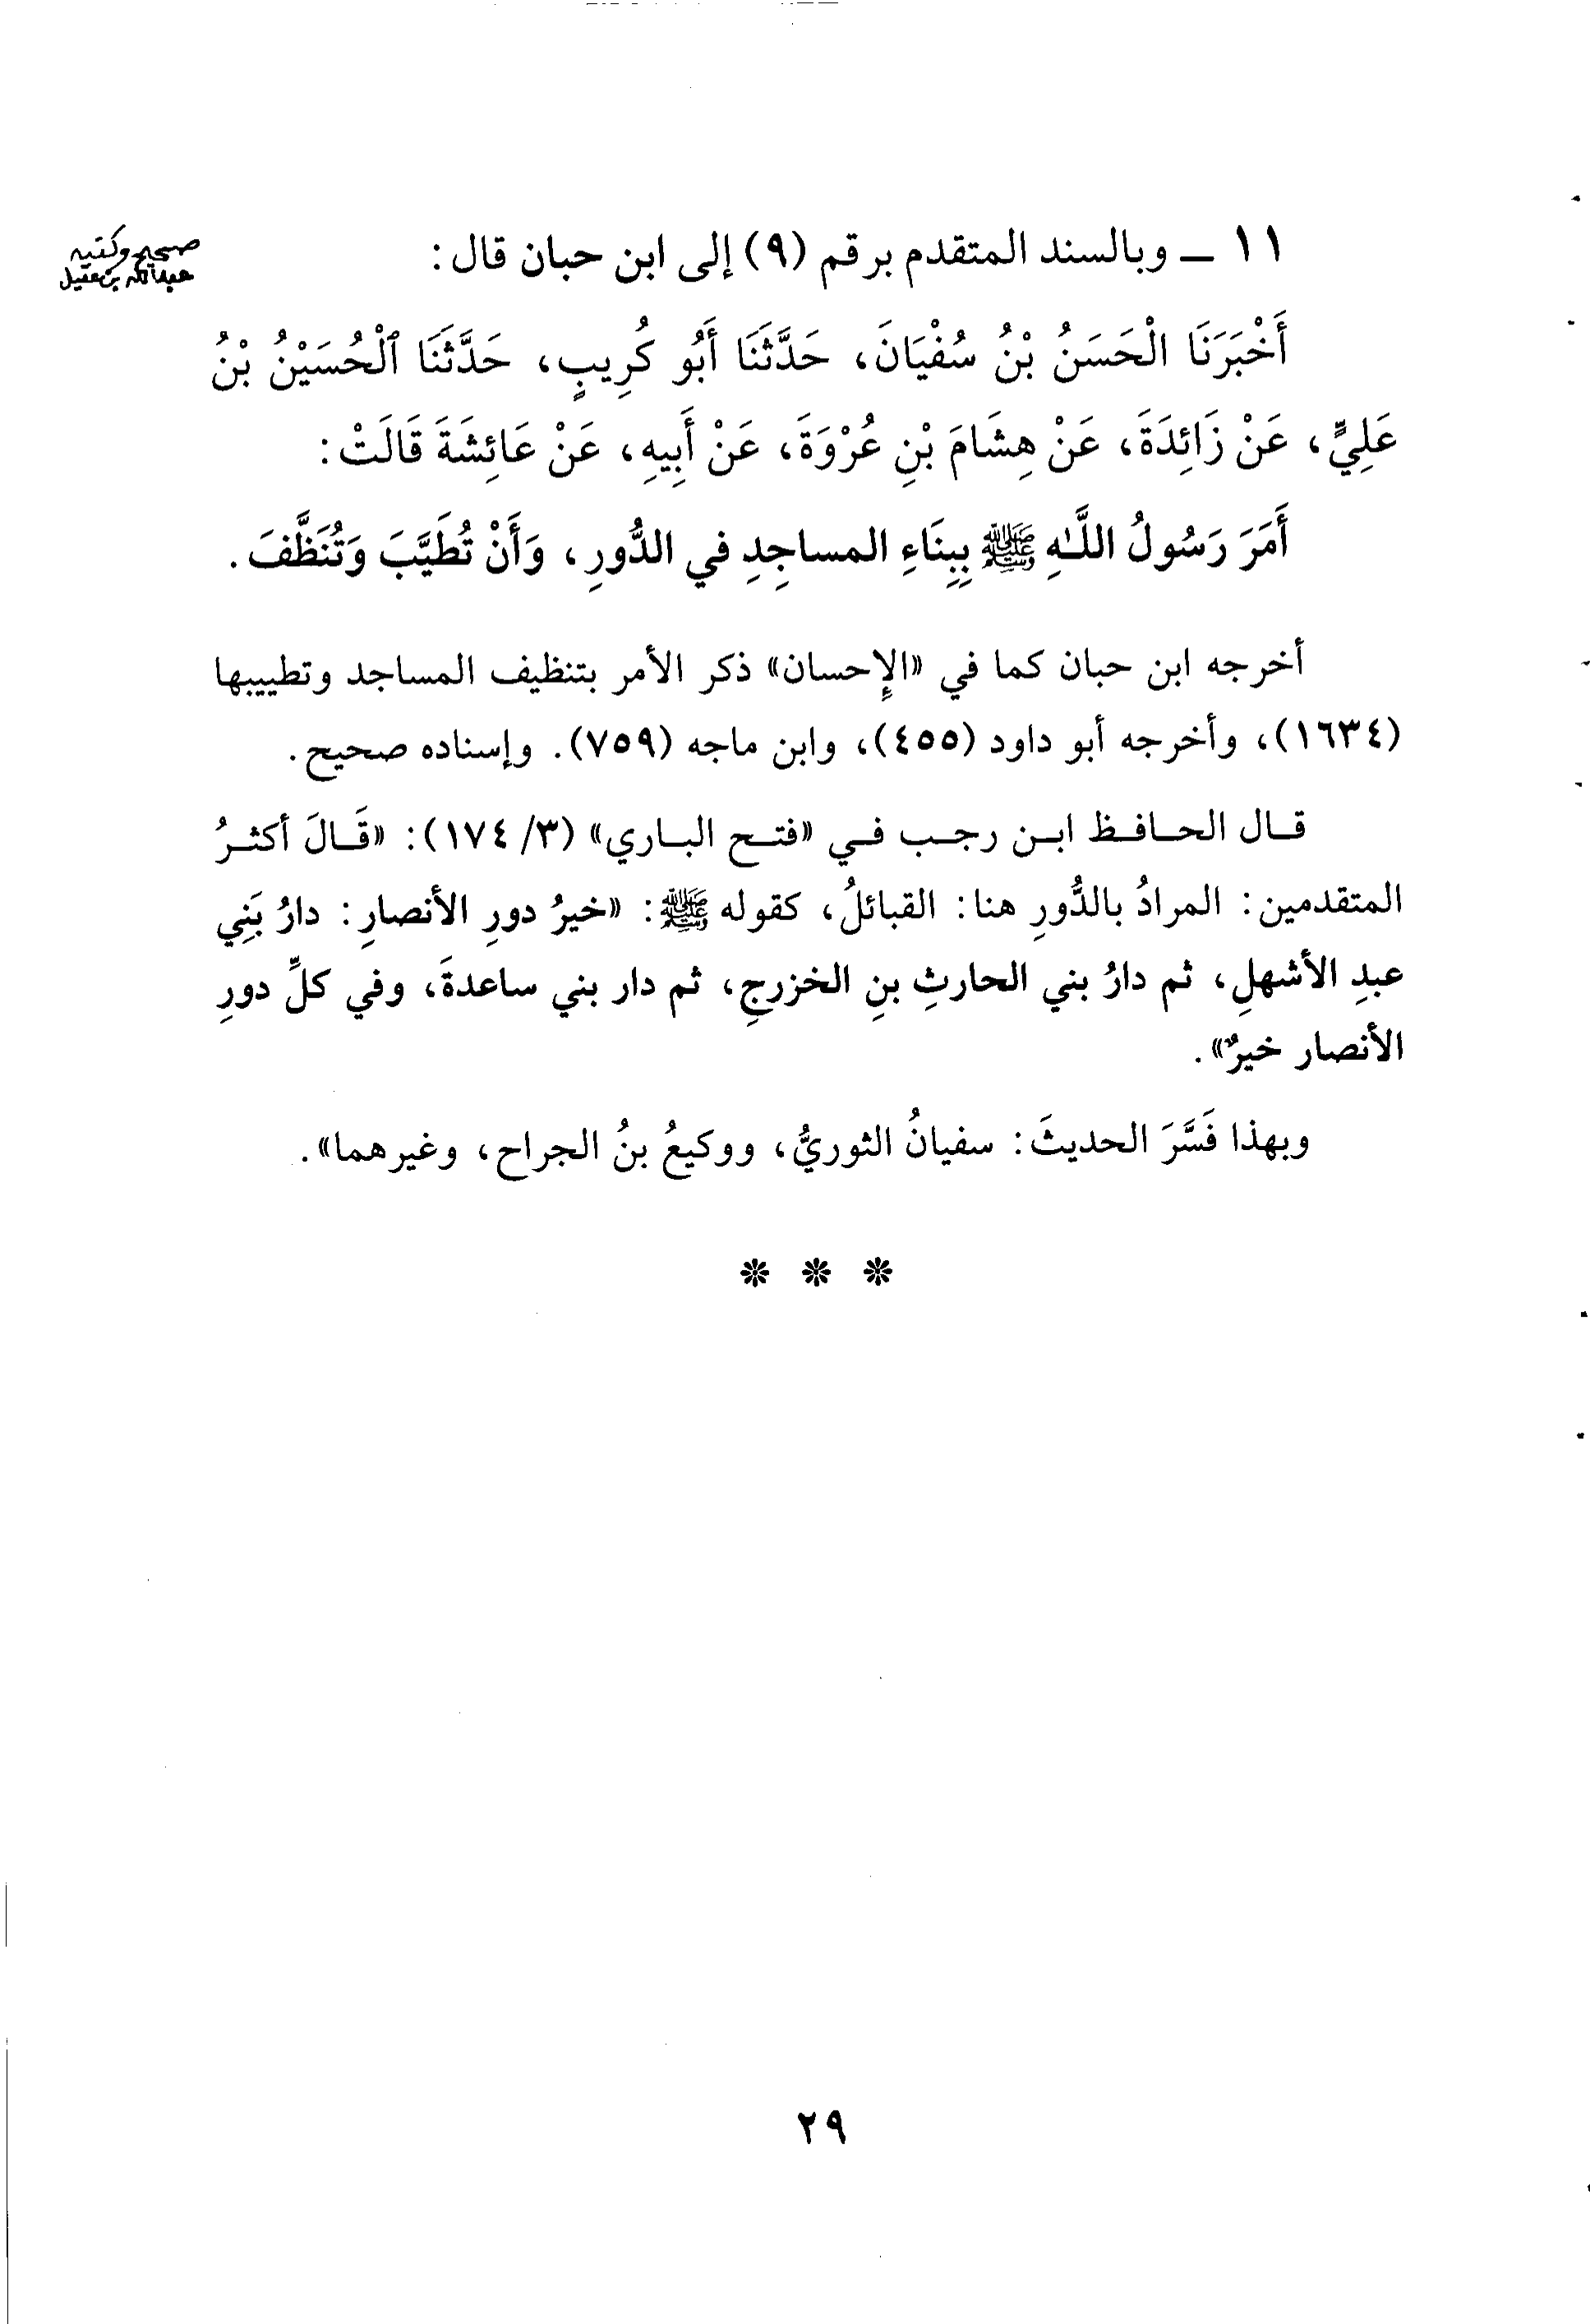 ١١ ــ وبالسند المتقدم برقم (٩) إلى ابن حبان قال:
صحيح وكتبه
عبدالله بن عقيل
أَخْبَرَنَا الْحَسَنُ بْنُ سُفْيَانَ، حَدَّثَنَا أَبُو كُرِيبٍ، حَدَّثَنَا ٱلْحُسَيْنُ بْنُ
عَلِيٍّ، عَنْ زَائِدَةَ، عَنْ هِشَامَ بْنِ عُرْوَةَ، عَنْ أَبِيهِ، عَنْ عَائِشَةَ قَالَتْ:
أَمَرَ رَسُولُ اللَّـهِ ﷺ بِبِنَاءِ المساجِدِ في الدُّورِ، وَأَنْ تُطَيَّبَ وَتُنَظَّفَ.
أخرجه ابن حبان كما في «الإحسان» ذكر الأمر بتنظيف المساجد وتطييبها
(١٦٣٤)، وأخرجه أبو داود (٤٥٥)، وابن ماجه (٧٥٩). وإسناده صحيح.
قـال الحـافـظ ابـن رجـب فـي «فتـح البـاري» (٣/ ١٧٤): «قَـالَ أكثـرُ
المتقدمين: المرادُ بالدُّورِ هنا: القبائلُ، كقوله ﷺ: «خيرُ دورِ الأنصارِ: دارُ بَنِي
عبدِ الأشهلِ، ثم دارُ بني الحارثِ بنِ الخزرجِ، ثم دار بني ساعدةَ، وفي كلِّ دورِ
الأنصار خيرٌ».
وبهذا فَسَّرَ الحديثَ: سفيانُ الثوريُّ، ووكيعُ بنُ الجراح، وغيرهما».
❊ ❊ ❊
٢٩